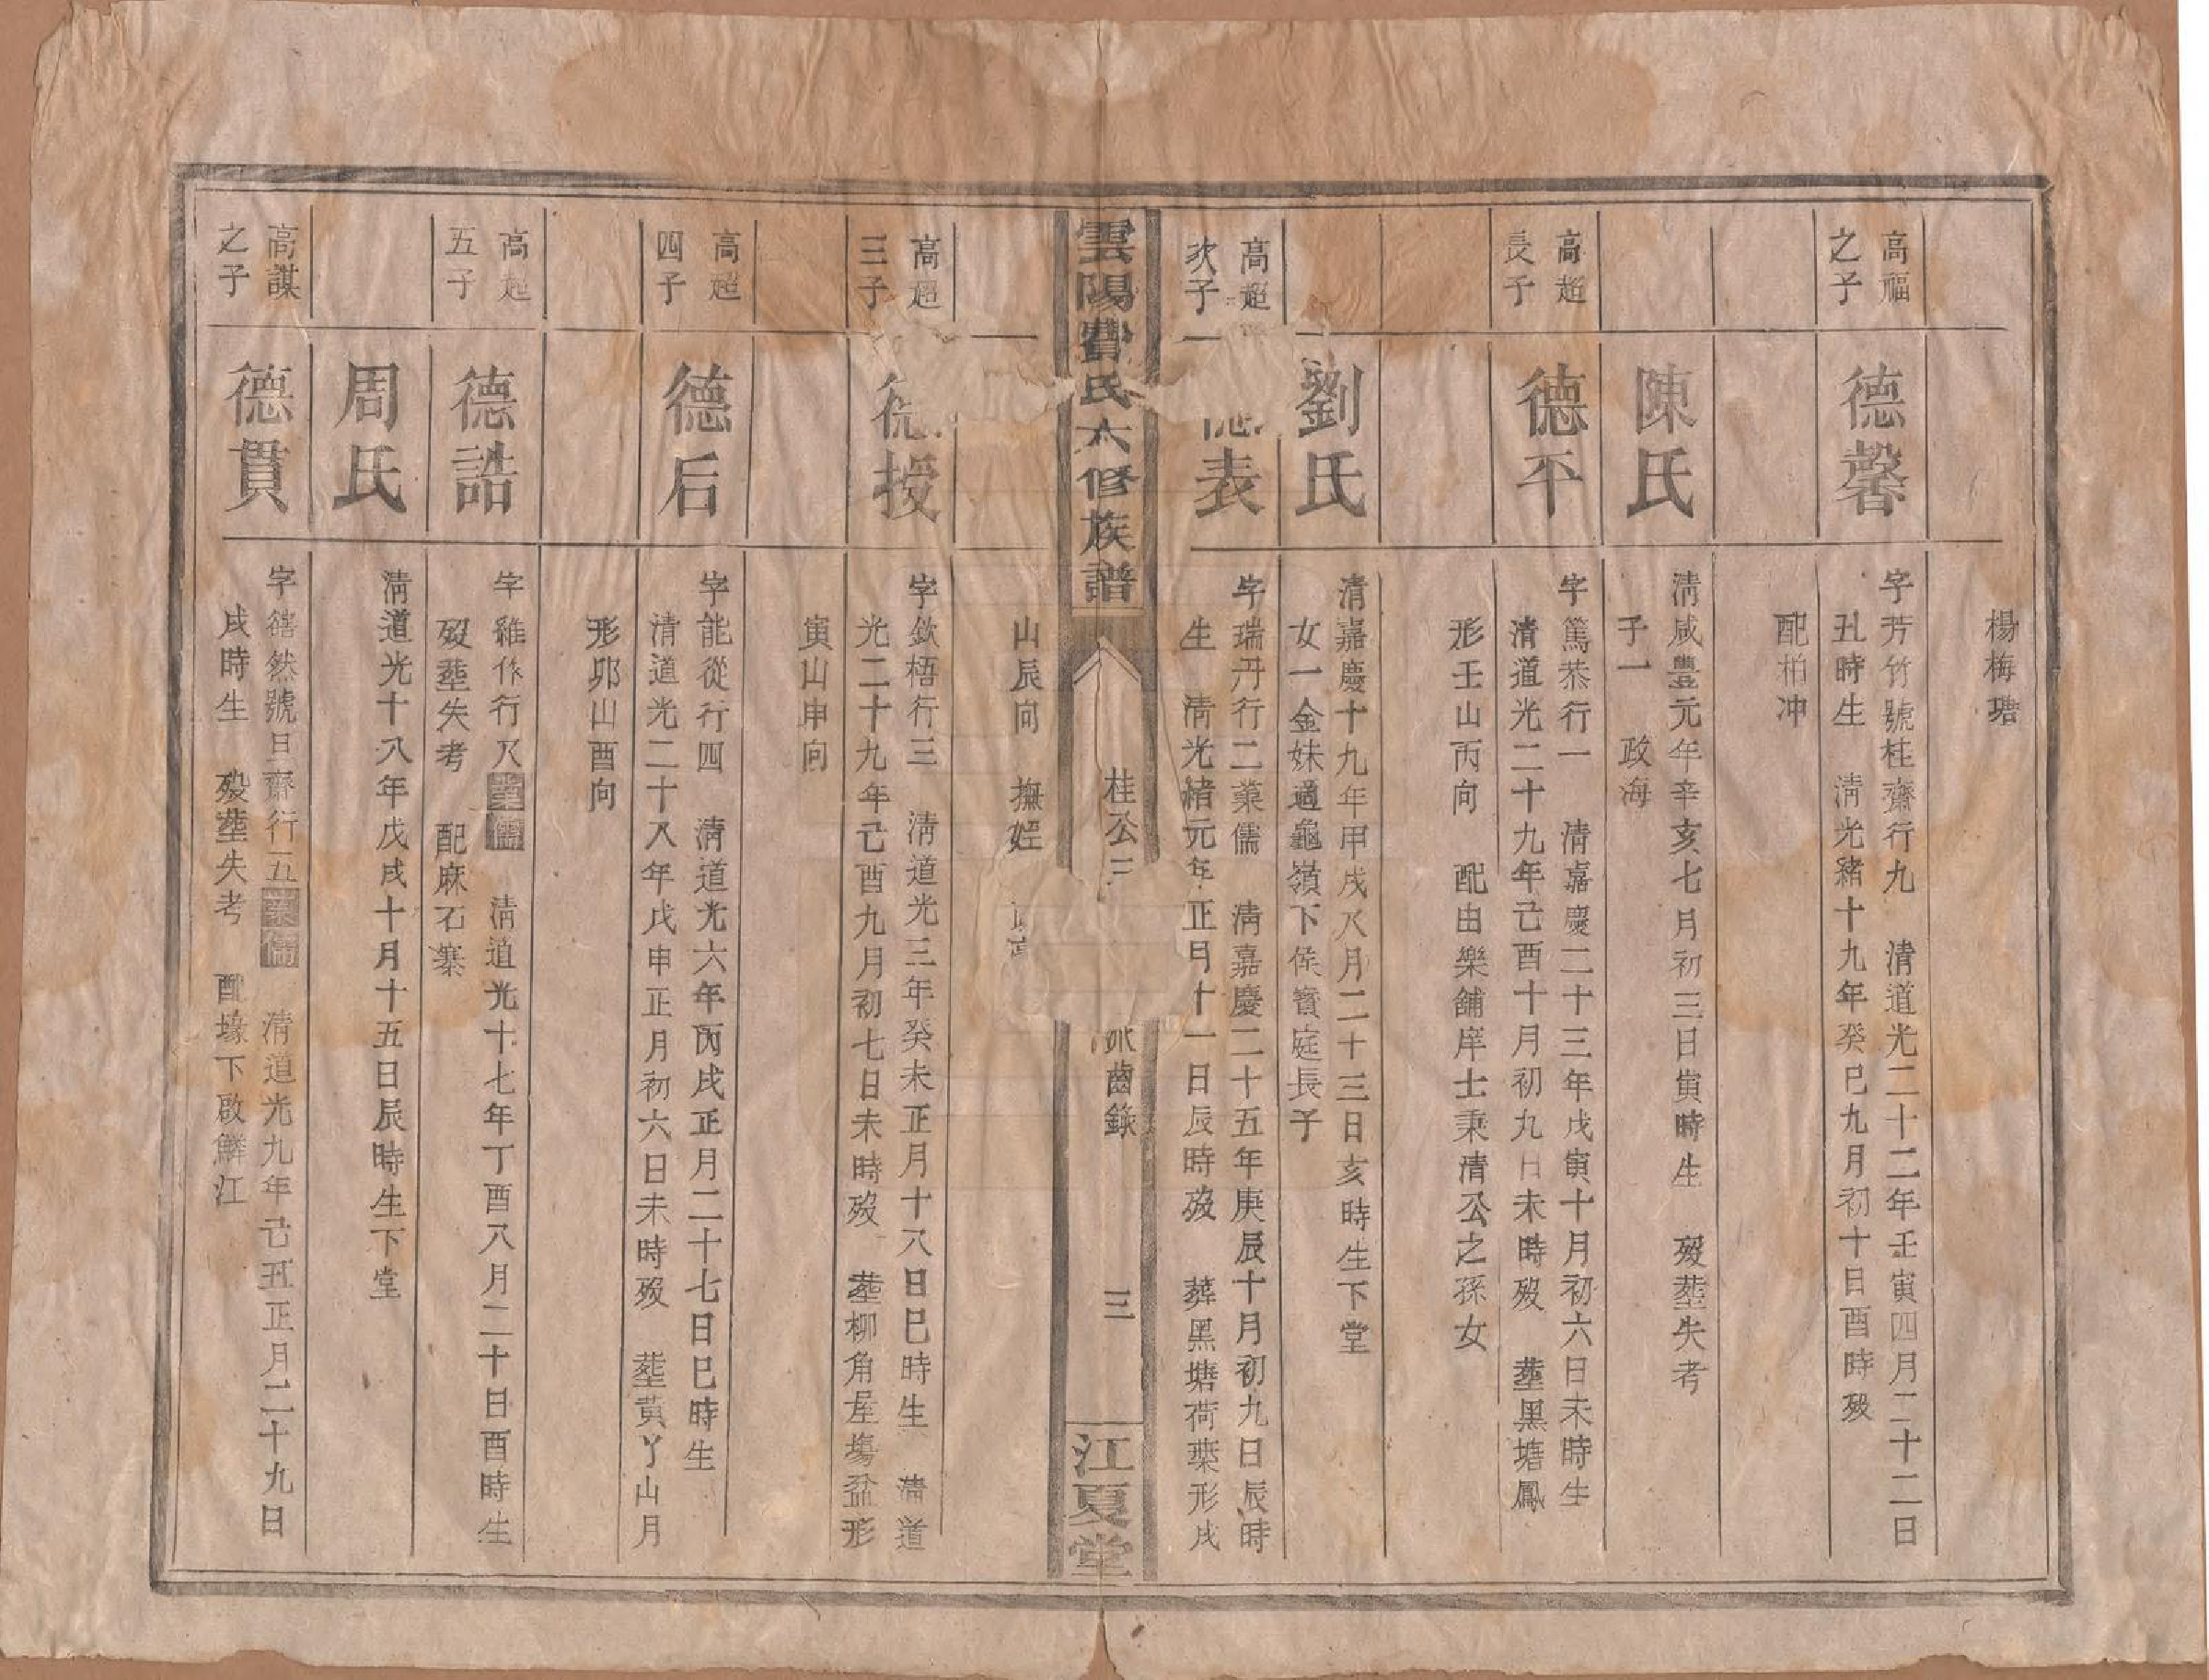 楊梅𤧛
高福
之子
德馨
字芳竹號桂齋行九 清道光二十二年壬寅四月二十二日
丑時生 清光緒十九年癸巳九月初十日酉時歿
配柏冲
陳氏
清咸豐元年辛亥七月初三日寅時生 歿塟失考
子一 政海
高超
長子
德平
字篤恭行一 清嘉慶二十三年戊寅十月初六日未時生
清道光二十九年己酉十月初九日未時歿 塟黑塘鳳
形壬山丙向 配由樂舖庠士秉清公之孫女
劉氏
清嘉慶十九年甲戌八月二十三日亥時生下堂
女一金妹適龜嶺下侯寶庭長子
高超
次子
德表
字瑞丹行二業儒 清嘉慶二十五年庚辰十月初九日辰時
生 清光緒元年正月十一日辰時歿 葬黑塘荷葉形戌
雲陽費氏六修族譜
桂公三
派齒錄
三
江夏堂
山辰向 撫姪
高超
三子
德授
字欽梧行三 清道光三年癸未正月十八日巳時生 清道
光二十九年己酉九月初七日未時歿 塟柳角屋塲盆形
寅山申向
高超
四子
德后
字能從行四 清道光六年丙戌正月二十七日巳時生
清道光二十八年戊申正月初六日未時歿 塟黃丫山月
形卯山酉向
高超
五子
德誥
字維作行八業儒 清道光十七年丁酉八月二十日酉時生
歿塟失考 配麻石寨
周氏
清道光十八年戊戌十月十五日辰時生下堂
高謀
之子
德貫
字禧然號旦齋行五業儒 清道光九年己丑正月二十九日
戌時生 歿塟失考 配塘下啟鱗江